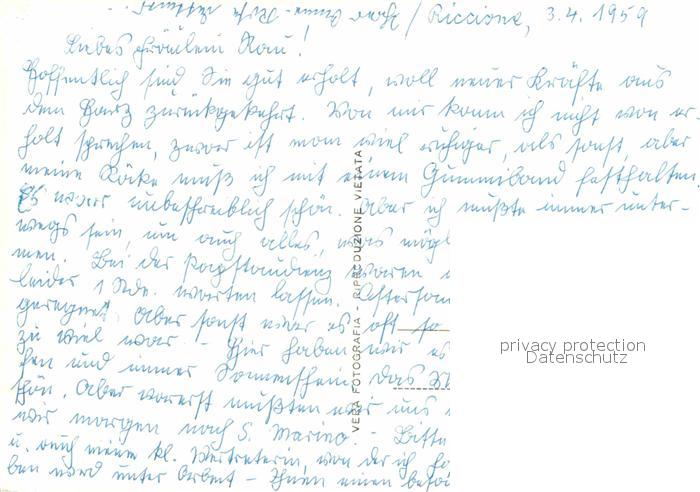 Riccione, 3.4.1959
Liebes Fräulein Rau!
Hoffentlich sind Sie gut erholt, voll neuer Kräfte aus
dem Harz zurückgekehrt. Von mir kann ich nicht von er-
holt sprechen, zwar ist man viel ruhiger, als sonst, aber
meine Röcke muß ich mit einem Gummiband festhalten.
Es war unbeschreiblich schön. Aber ich mußte immer unter-
wegs sein, um auch alles, was mögl
men. Bei der Papstaudienz waren
leider 1 Stde. warten lassen. Ostersonn
geregnet. Aber sonst war es oft so
zu viel war - Hier haben wir es
hen und immer Sonnenschein, das
schön. Aber vorerst mußten wir uns
wir morgen nach S. Marino - Bitte
u. auch meine kl. Vertreterin, von der ich
ben wird unter Arbeit - Ihnen einen
VERA FOTOGRAFIA - RIPRODUZIONE VIETATA
privacy protection
Datenschutz